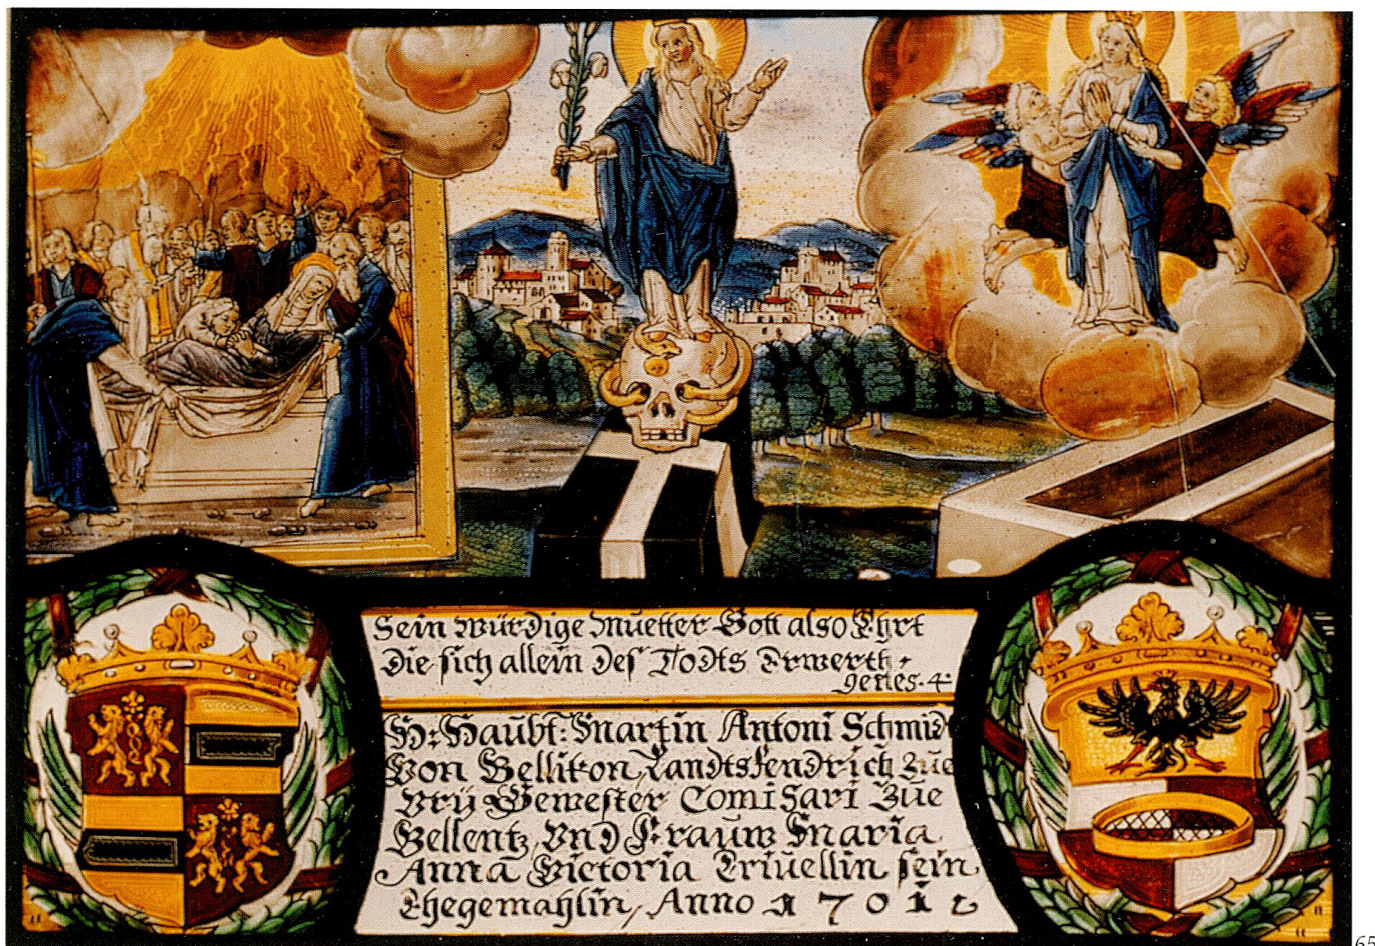 Sein würdige Muetter Gott also Ehrt
die sich allein des Todts Erwerth,
genes. 4.
H: Haubt: Martin Antoni Schmidt
Von Bellikon, Landtsfendrich Zue
Vrÿ Gewester Comisari Zue
Bellentz, Vnd Frauw Maria
Anna Victoria Triuellin sein
Ehegemahlin, Anno 1701
65